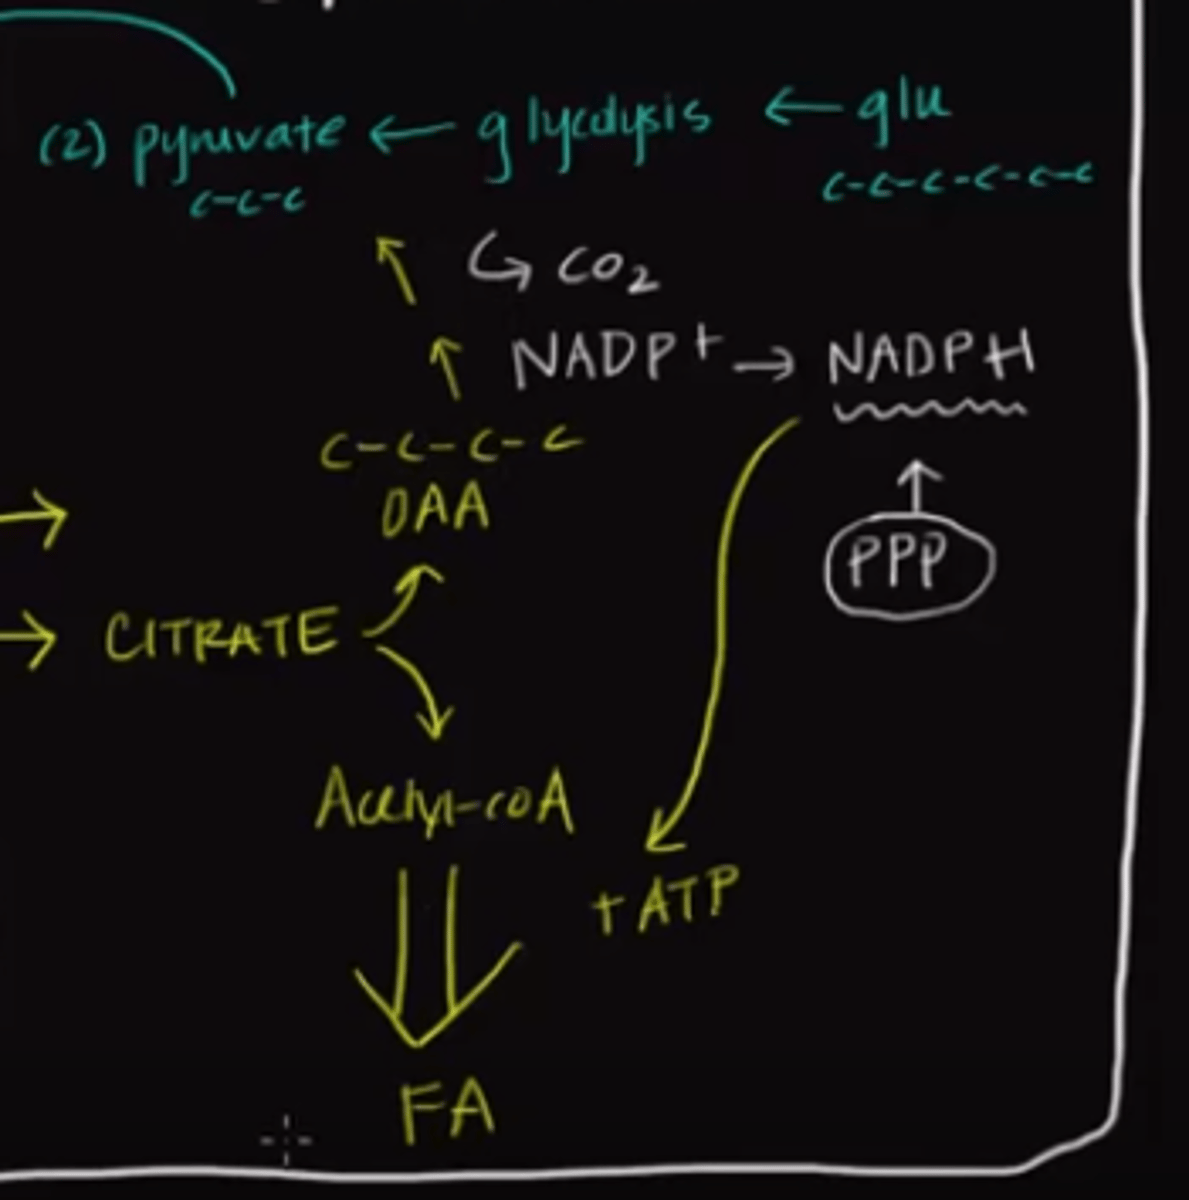 (2) pyruvate ← glycolysis ← glu
C-C-C
C-C-C-C-C-C
↳ CO₂
NADP+ → NADPH
C-C-C-C
OAA
PPP
CITRATE
Acetyl-coA
+ ATP
FA